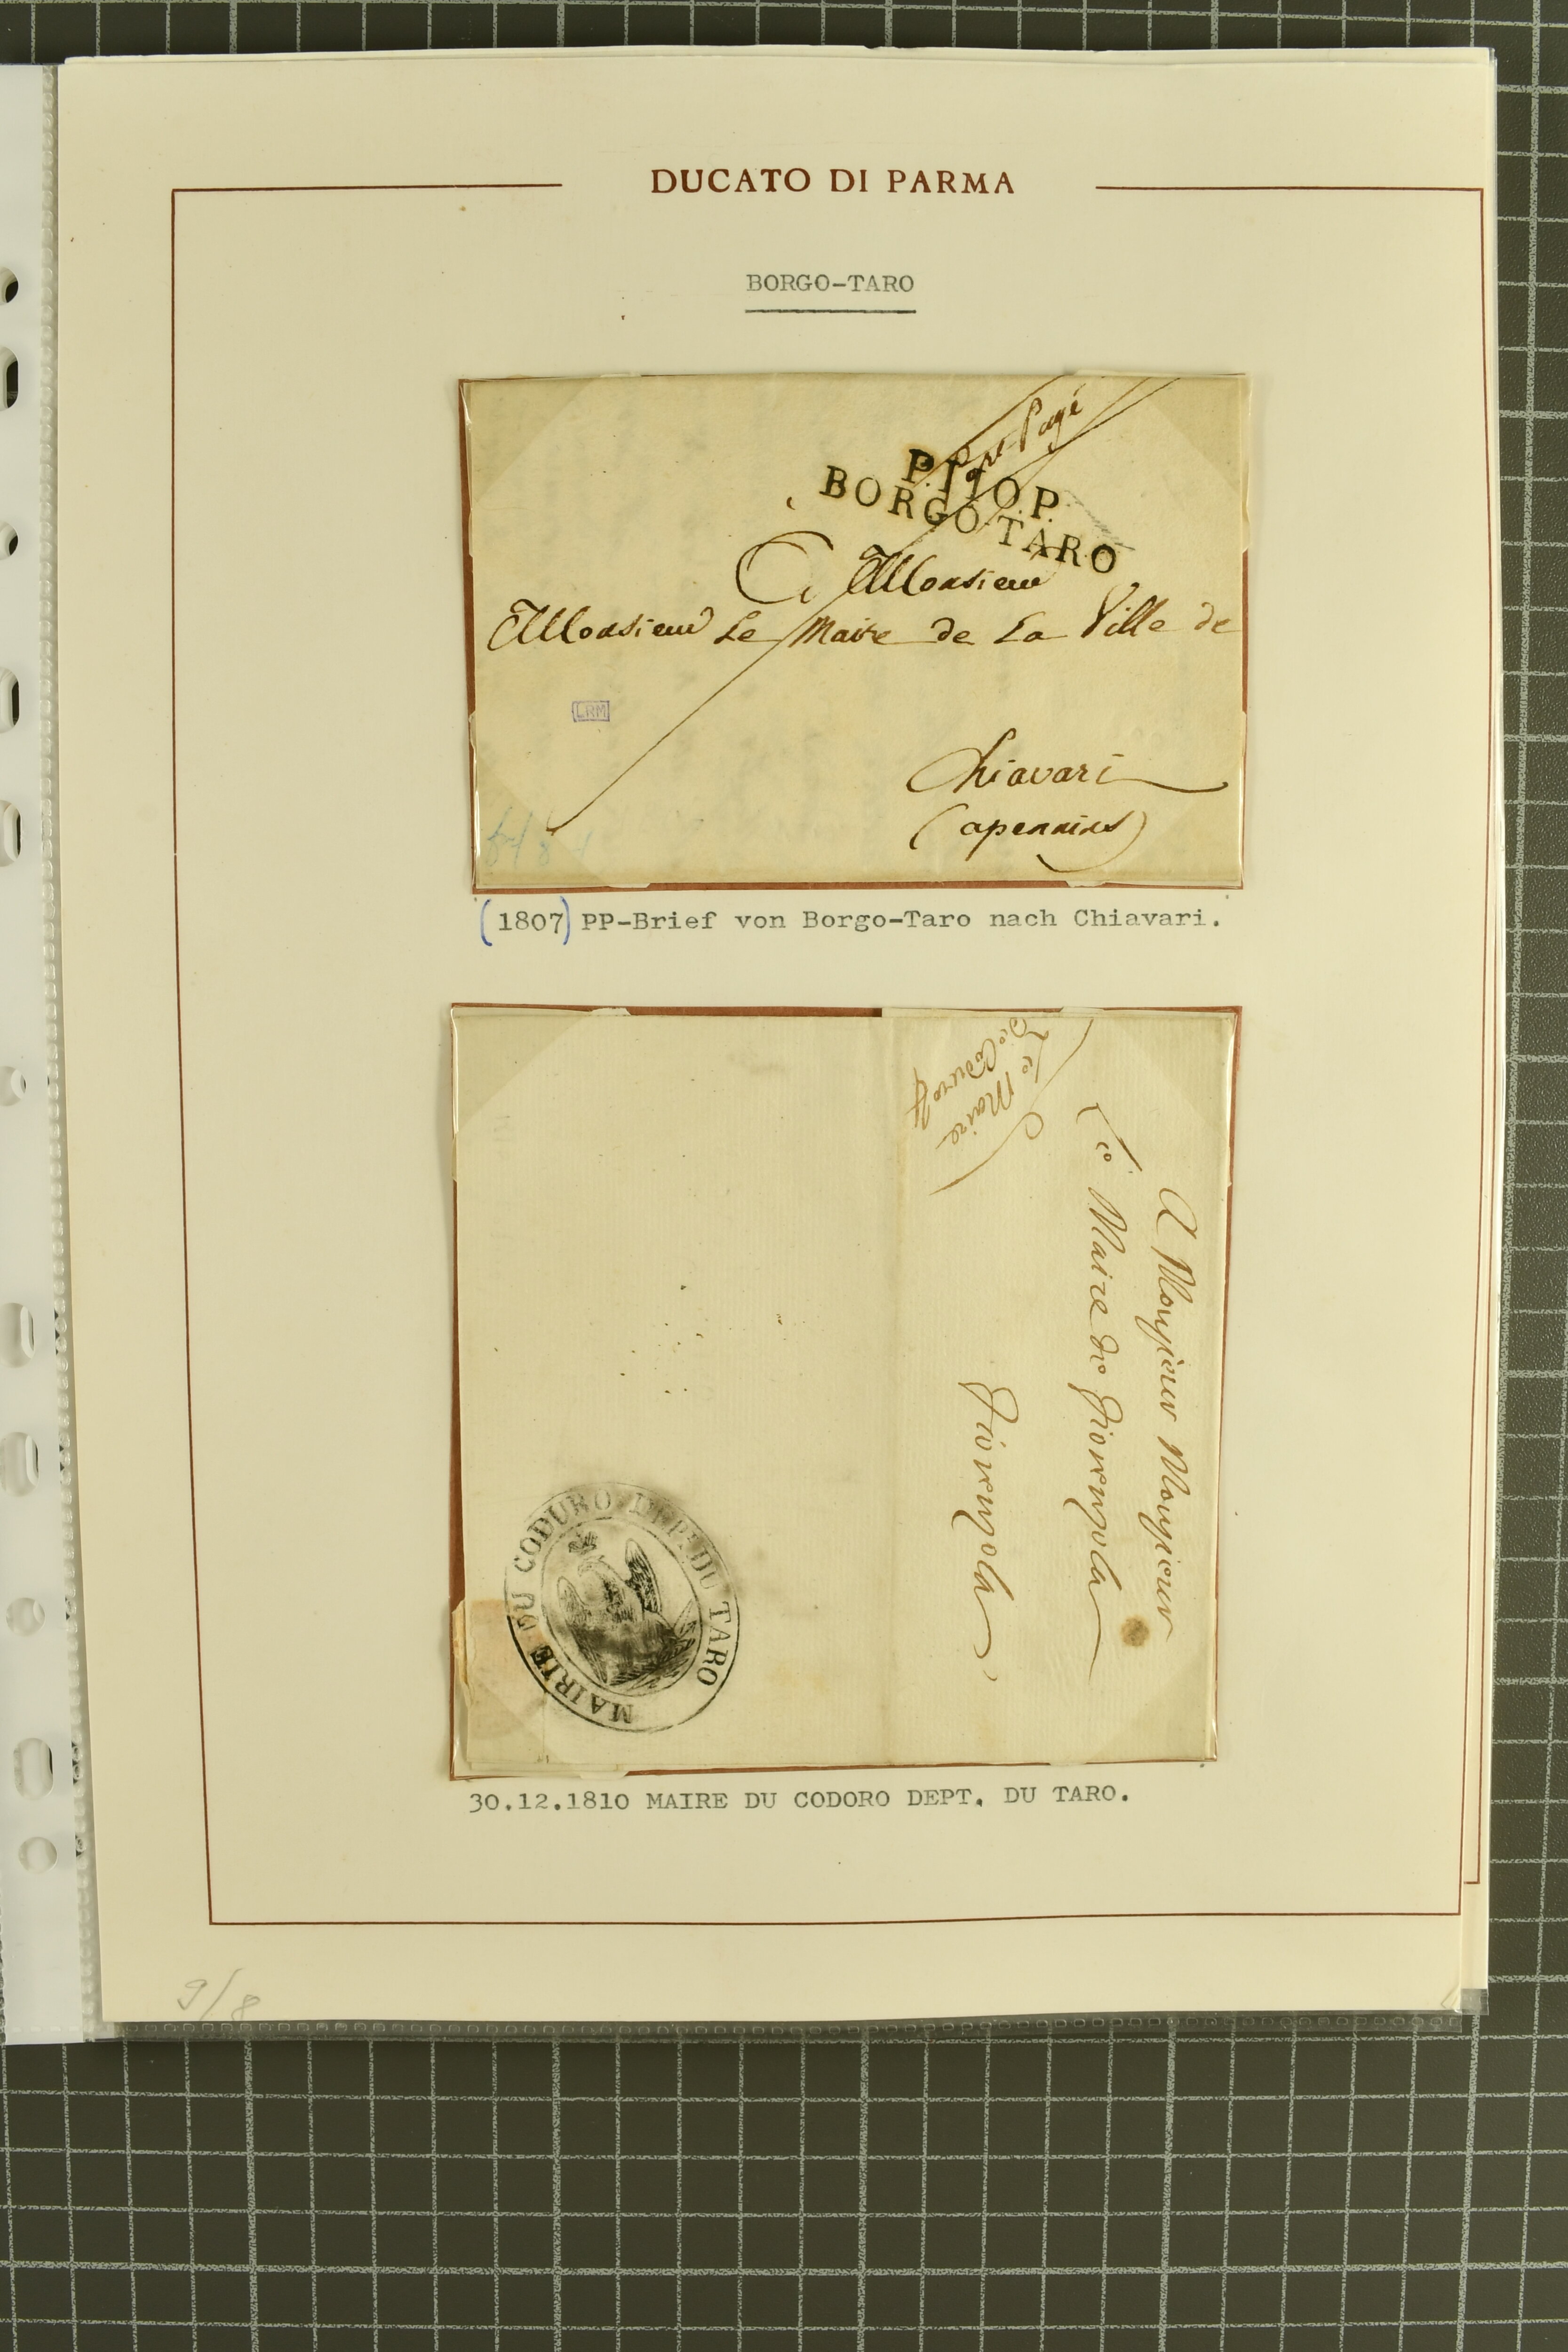 DUCATO DI PARMA
BORGO-TARO
Port Payé
P.110.P.
BORGO-TARO
A Monsieur
Monsieur Le Maire de La Ville de
LRM
Chiavari
(apennins)
(1807) PP-Brief von Borgo-Taro nach Chiavari.
Le Maire
de Coduro
A Monsieur Monsieur
Le Maire de Fiorenzola
Fiorenzola
MAIRIE DU CODURO DEPT. DU TARO
30.12.1810 MAIRE DU CODORO DEPT. DU TARO.
9/8